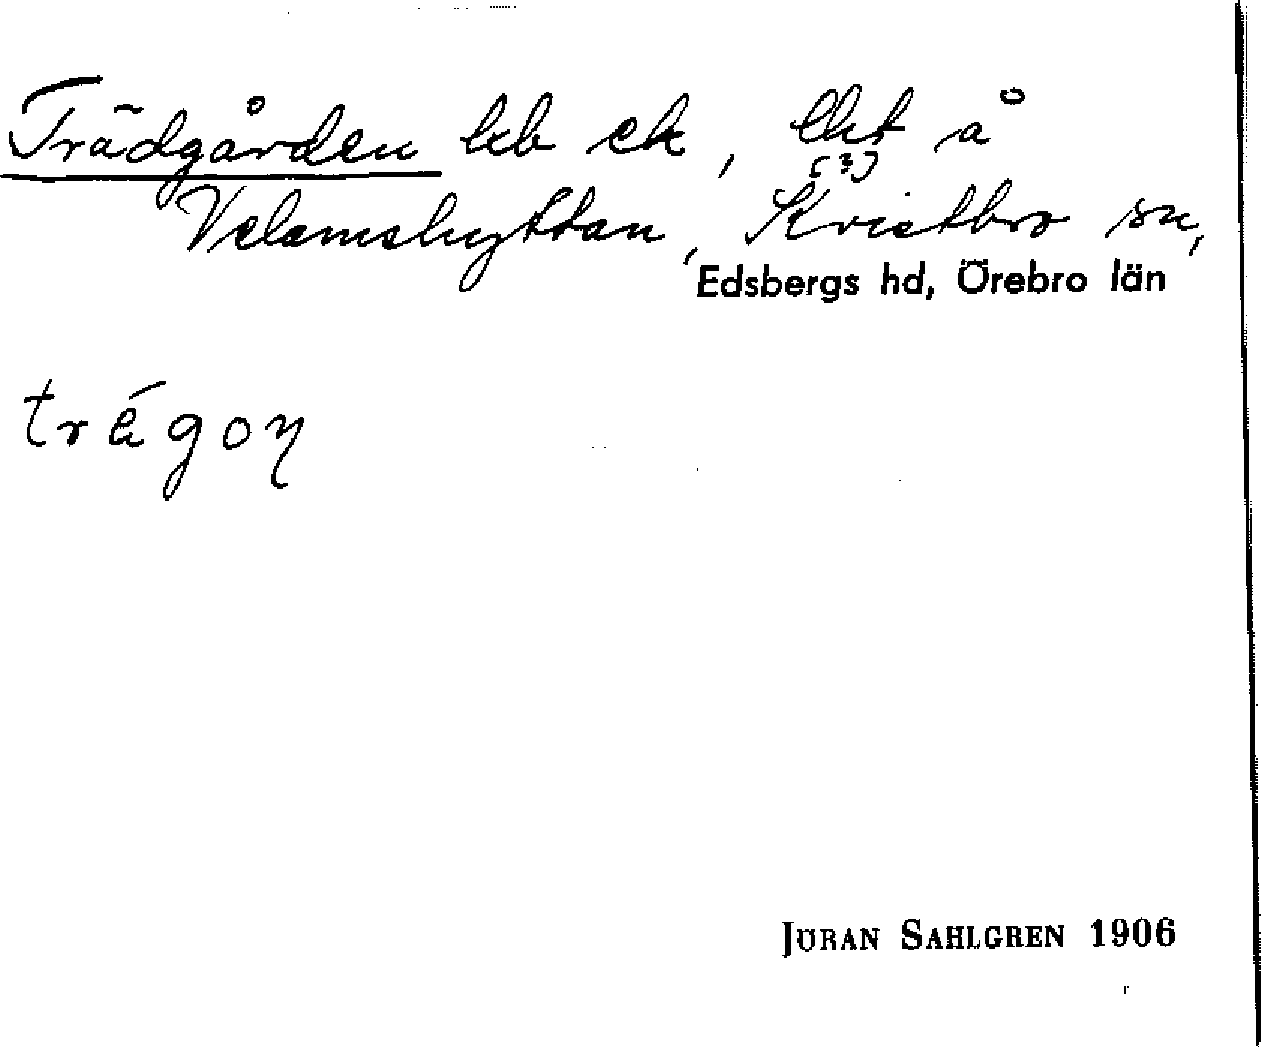 Trädgården leb ek, lht å
[?]
Velamshyttan, Kvistbro sn,
Edsbergs hd, Örebro län
trégoŋ
JÖRAN SAHLGREN 1906